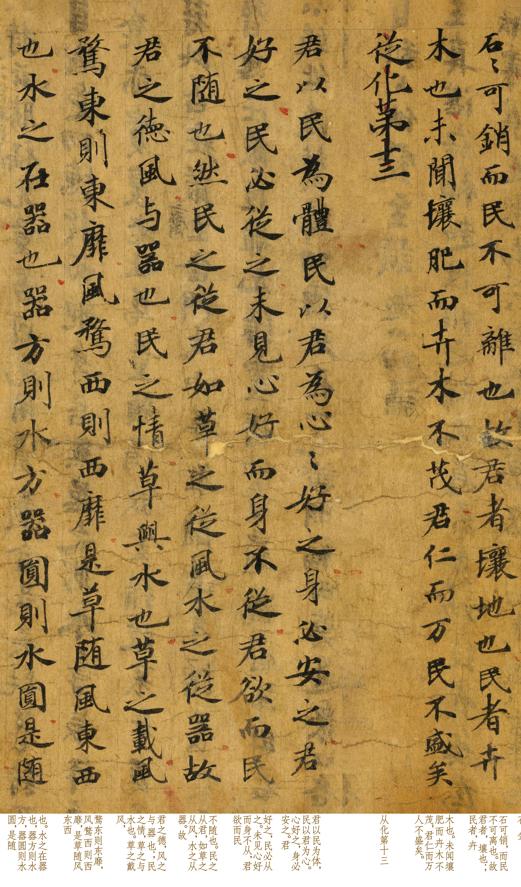 石〻可銷而民不可離也故君者壤地也民者卉
木也未聞壤肥而卉木不茂君仁而万民不盛矣
從化第十三
君以民為體民以君為心〻好之身必安之君
好之民必從之未見心好而身不從君欲而民
不随也然民之從君如草之從風水之從器故
君之德風与器也民之情草與水也草之載風
騖東則東靡風騖西則西靡是草随風東西
也水之在器也器方則水方器圓則水圓是随
石可销，而民
不可离也。故
君者，壤也；
民者，卉
木也。未闻壤
肥而卉木不
茂，君仁而万
人不盛矣。
从化第十三
君以民为体，
民以君为心。
心好之，身必
安之。君
好之，民必从
之。未见心好
而身不从，君
欲而民
不随也。民之
从君，如草之
从风，水之从
器。故
君之德，风之
与器也；民
之情，草之与
水也。草之戴
风，
骛东则东靡，
风骛西则西
靡，是草随风
东西
也。水之在器
也，器方则水
方，器圆则水
圆，是随